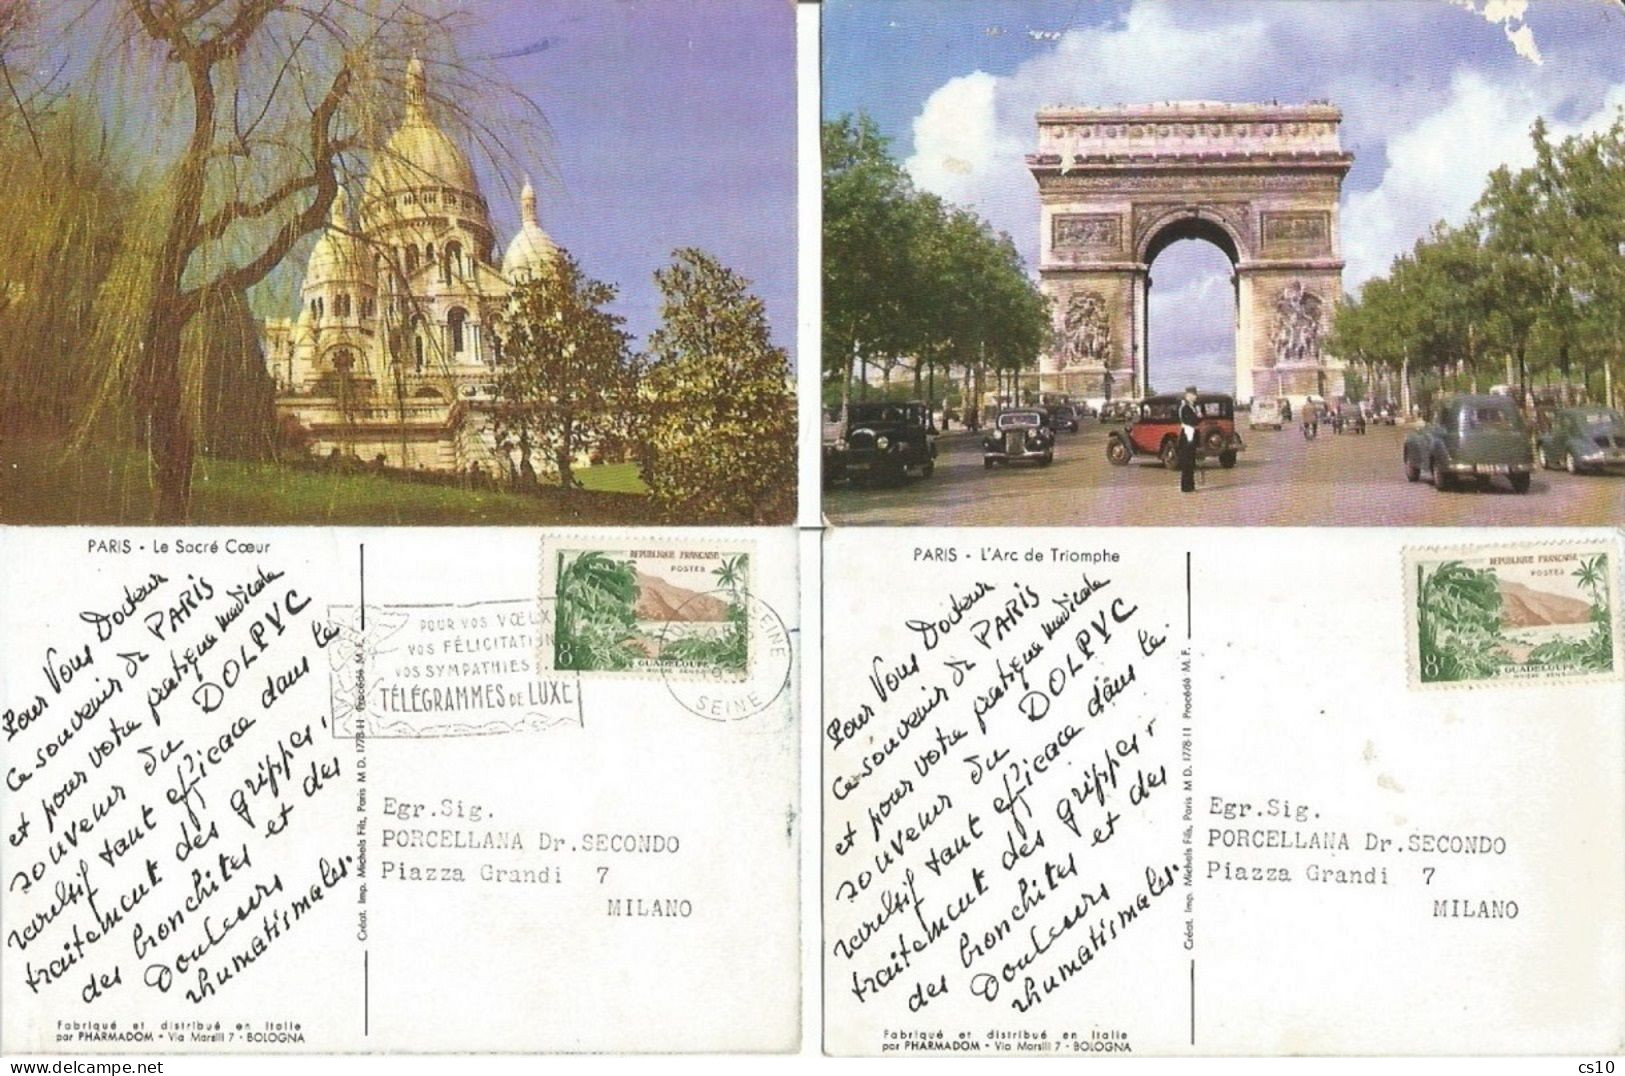 PARIS - Le Sacré Cœur
Pour Vous Docteur
ce souvenir de PARIS
et pour votre pratique médicale
souvenir du DOLPYC
revulsif tant efficace dans le
traitement des grippes,
des bronchites et des
douleurs
rhumatismales.
Créat. Imp. Michels Fils, Paris M D. 1778-11 Procédé M. F.
Fabriqué et distribué en Italie
par PHARMADOM - Via Marsili 7 - BOLOGNA
POUR VOS VŒUX
VOS FÉLICITATION
VOS SYMPATHIES
TÉLÉGRAMMES DE LUXE
SEINE
SEINE
REPUBLIQUE FRANÇAISE
POSTES
8F
GUADELOUPE
RIVIÈRE SENS
Egr.Sig.
PORCELLANA Dr.SECONDO
Piazza Grandi 7
MILANO
PARIS - L'Arc de Triomphe
Pour Vous Docteur
ce souvenir de PARIS
et pour votre pratique médicale
souvenir du DOLPYC
revulsif tant efficace dans le
traitement des grippes,
des bronchites et des
douleurs
rhumatismales.
Créat. Imp. Michels Fils, Paris M D. 1778-11 Procédé M. F.
Fabriqué et distribué en Italie
par PHARMADOM - Via Marsili 7 - BOLOGNA
REPUBLIQUE FRANÇAISE
POSTES
8F
GUADELOUPE
RIVIÈRE SENS
Egr.Sig.
PORCELLANA Dr.SECONDO
Piazza Grandi 7
MILANO
cs10